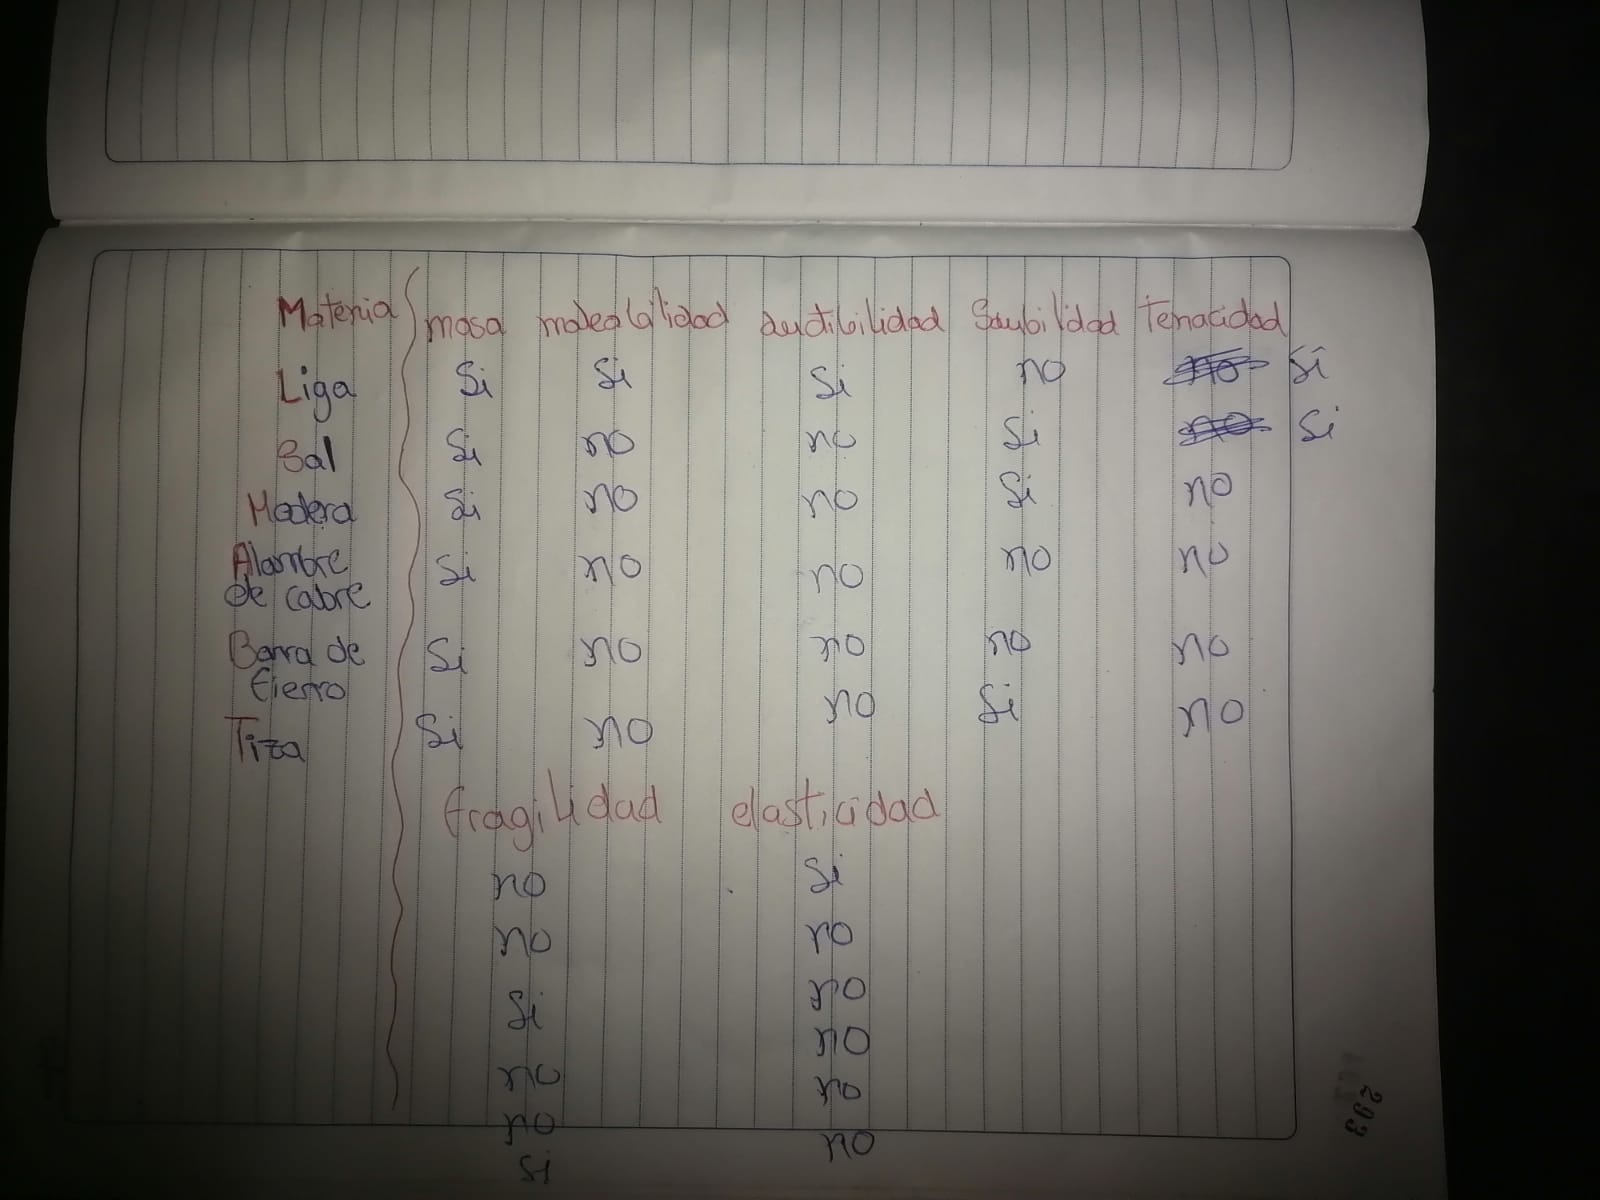 Materia masa maleabilidad ductibilidad Saubilidad Tenacidad
Liga Si Si Si no no Si
Sal Si no no Si no Si
Madera Si no no Si no
Alambre Si no no no no
de cobre
Barra de Si no no no no
fierro
Tiza Si no no Si no
fragilidad elasticidad
no Si
no no
Si no
no no
no no
Si no
293